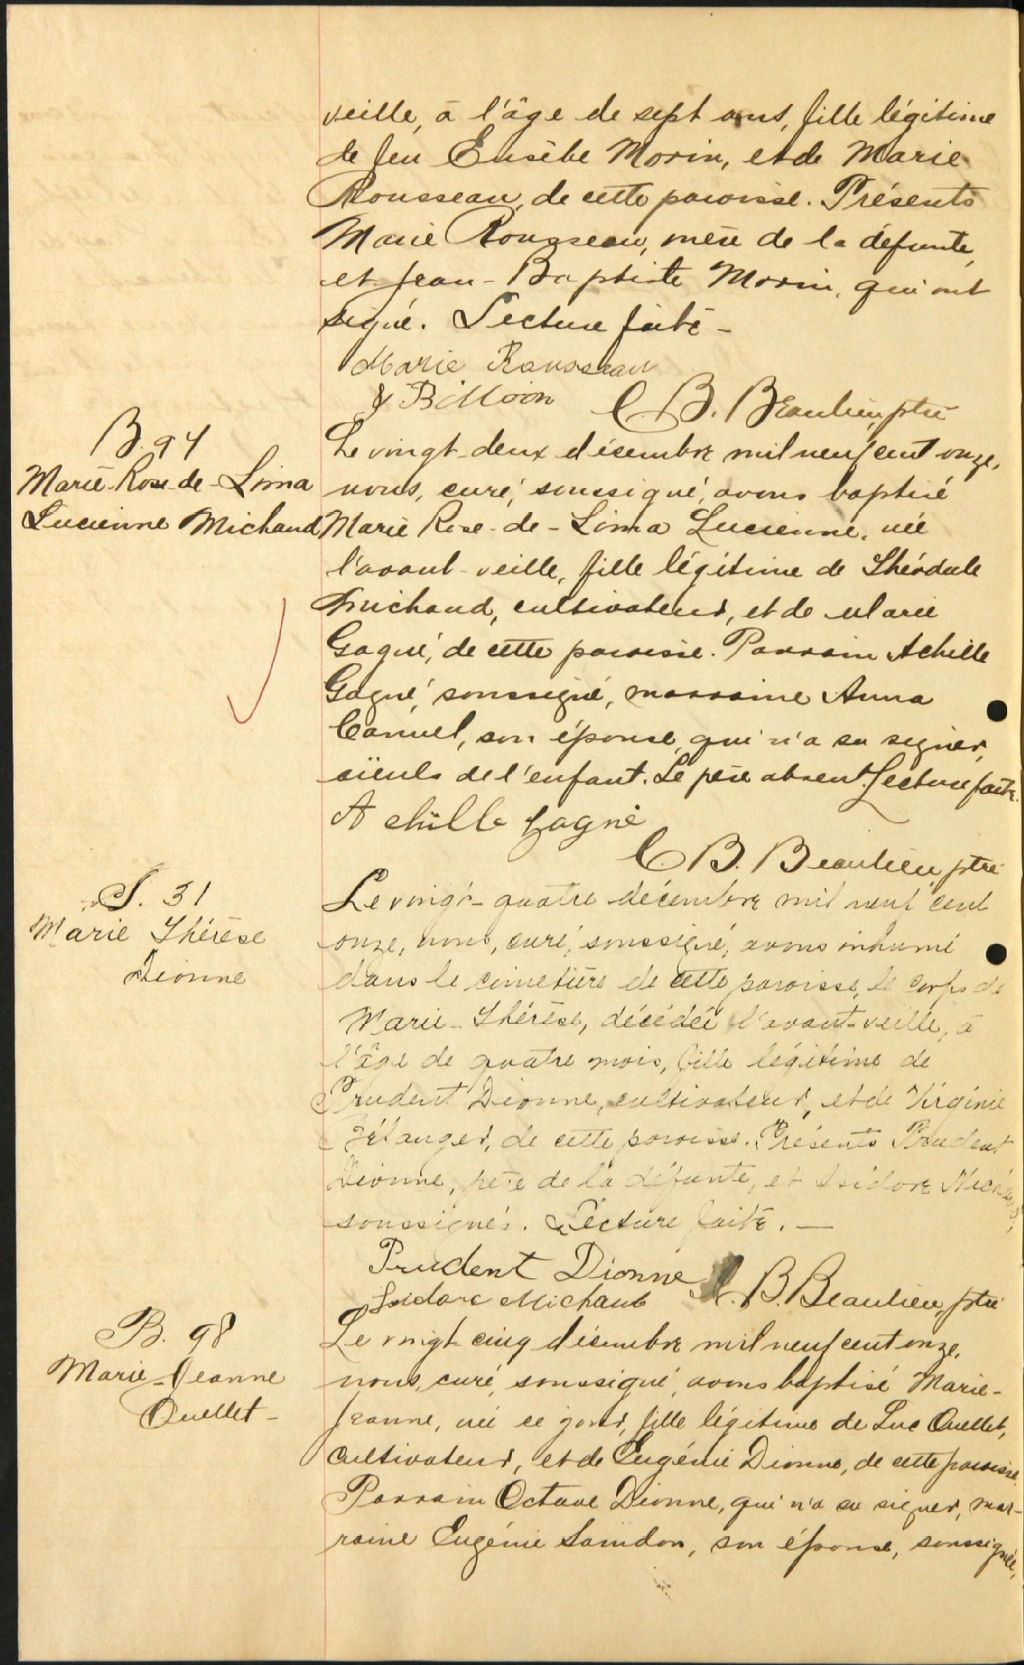 veille, à l'âge de sept ans, fille légitime
de feu Eusèbe Morin, et de Marie
Rousseau, de cette paroisse. Présents
Marie Rousseau, mère de la défunte,
et Jean-Baptiste Morin, qui ont
signé. Lecture faite -
Marie Rousseau
J B Morin C. B. Beaulieu, ptre
B. 97
Marie-Rose-de-Lima
Lucienne Michaud
Le vingt-deux décembre mil neuf cent onze,
nous, curé, soussigné, avons baptisé
Marie Rose-de-Lima Lucienne, née
l'avant-veille, fille légitime de Théodule
Michaud, cultivateur, et de Marie
Gagné, de cette paroisse. Parrain Achille
Gagné, soussigné, marraine Anna
Canuel, son épouse, qui n'a su signer,
aïeuls de l'enfant. Le père absent. Lecture faite.
Achille Gagné
C. B. Beaulieu, ptre
S. 31
Marie Thérèse
Dionne
Le vingt-quatre décembre mil neuf cent
onze, nous, curé, soussigné, avons inhumé
dans le cimetière de cette paroisse, le corps de
Marie-Thérèse, décédée l'avant-veille, à
l'âge de quatre mois, fille légitime de
Prudent Dionne, cultivateur, et de Virginie
Bélanger, de cette paroisse. Présents Prudent
Dionne, père de la défunte, et Isidore Michaud,
soussignés. Lecture faite. —
Prudent Dionne
Isidore Michaud C. B. Beaulieu, ptre
B. 98
Marie-Jeanne
Ouellet -
Le vingt-cinq décembre mil neuf cent onze,
nous, curé, soussigné, avons baptisé Marie-
Jeanne, née ce jour, fille légitime de Luc Ouellet,
cultivateur, et de Eugénie Dionne, de cette paroisse
Parrain Octave Dionne, qui n'a su signer, mar-
raine Eugénie Saindon, son épouse, soussignée,